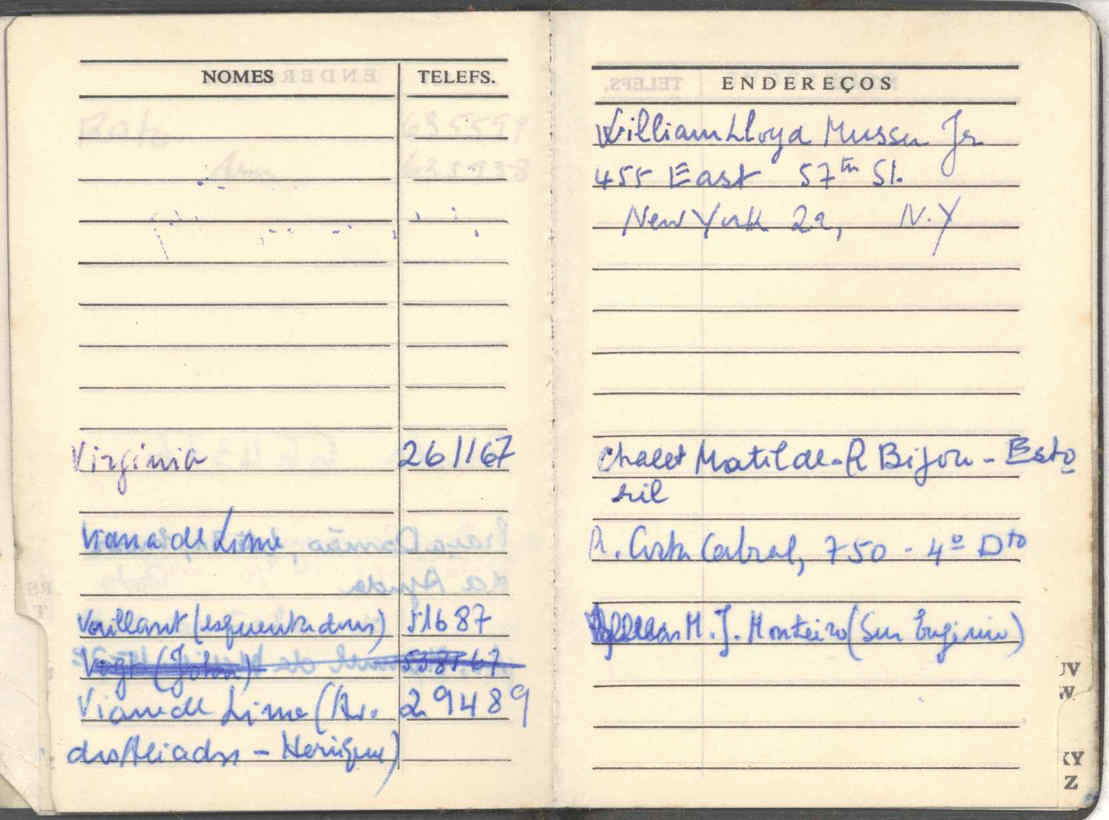 NOMES TELEFS.
Virginia 261167
Viana de Lima
Vaillant (esquentadores) 51687
Vogt (John) 538567
Viana de Lima (Av. 29489
dos Aliados - Henrique)
ENDEREÇOS
William Lloyd Musser Jr
455 East 57th St.
New York 22, N.Y
Chalet Matilde - R Bijou - Esto
ril
R. Costa Cabral, 750 - 4º Dto
M. J. Monteiro (Snr Eugénio)
UV
W
XY
Z